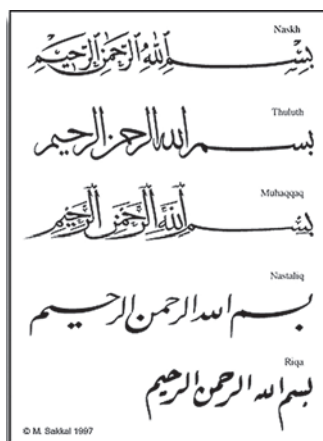 Naskh
بِسْمِ اللهِ الرَّحْمٰنِ الرَّحِيْمِ
Thuluth
بسم الله الرحمن الرحيم
Muhaqqaq
بِسْمِ اللَّهِ الرَّحْمَنِ الرَّحِيمِ
Nastaliq
بسم الله الرحمن الرحیم
Riqa
بسم الله الرحمن الرحيم
© M. Sakkal 1997